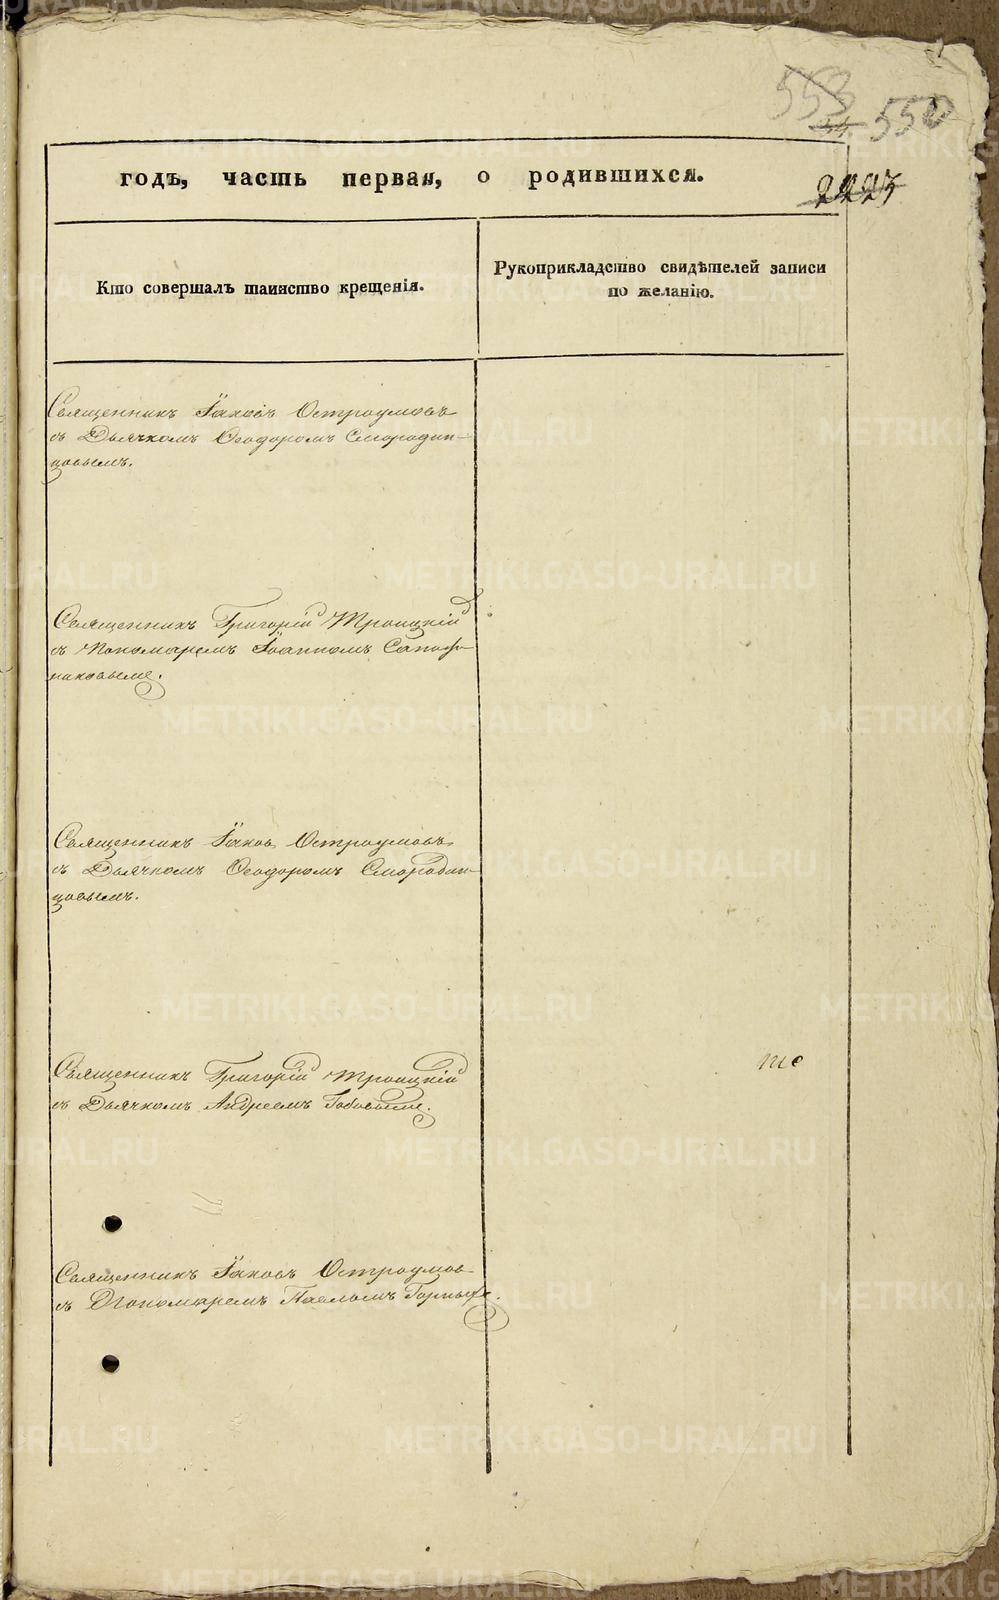 553
550
годъ, часть первая, о родившихся.
2223
Кто совершалъ таинство крещенія.
Рукоприкладство свидѣтелей записи
по желанію.
Священникъ Іаковъ Остроумовъ
съ Дьячкомъ Ѳеодоромъ Смородин-
цовымъ.
Священникъ Григорій Троицкій
съ Пономаремъ Іоанномъ Сапож-
никовымъ.
Священникъ Іаковъ Остроумовъ
съ Дьячкомъ Ѳеодоромъ Смородин-
цовымъ.
Священникъ Григорій Троицкій
съ Дьячкомъ Андреемъ
те
Священникъ Іаковъ Остроумов
съ Пономаремъ Павломъ
METRIKI.GASO-URAL.RU